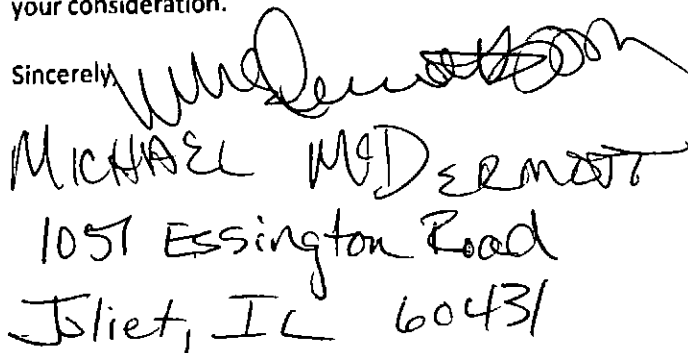 your consideration.
Sincerely,
MICHAEL McDERMOTT
1051 Essington Road
Joliet, IL 60431